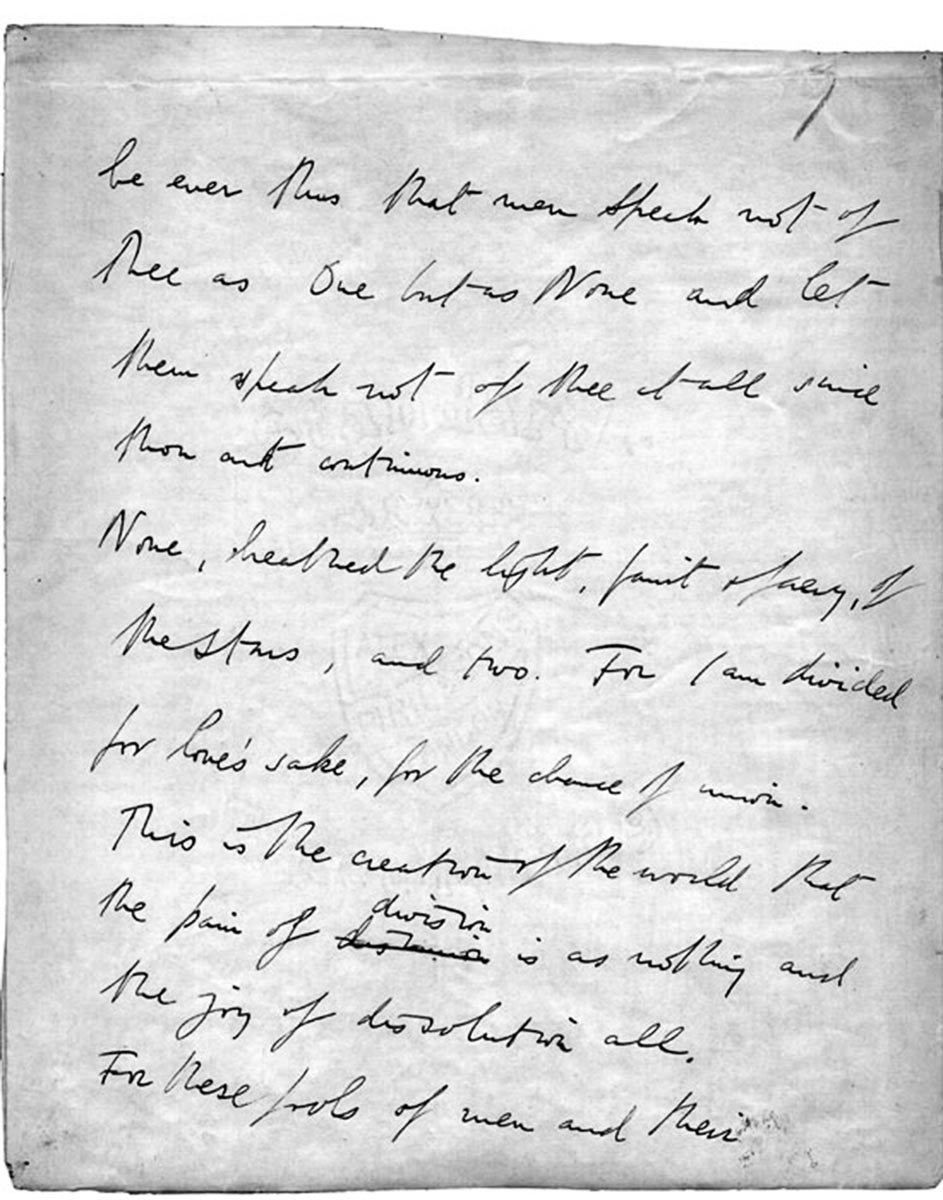 7
be ever thus that men speak not of
thee as One but as None and let
them speak not of thee at all since
thou art continuous.
None, breathed the light, faint & faery, of
the stars, and two. For I am divided
for love's sake, for the chance of union.
This is the creation of the world that
division
the pain of is as nothing and
the joy of dissolution all.
For these fools of men and their